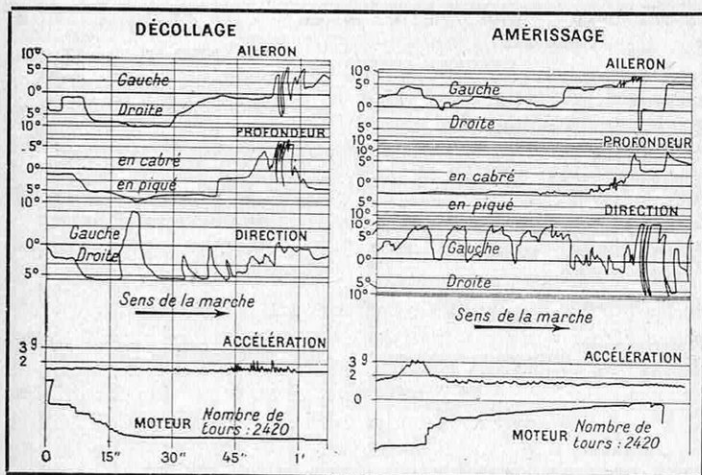 DÉCOLLAGE
AILERON
10°
5°
Gauche
0°
Droite
5°
10°
PROFONDEUR
5°
en cabré
0°
en piqué
5°
10°
DIRECTION
Gauche
0°
Droite
5°
Sens de la marche
ACCÉLÉRATION
3 g
2
MOTEUR Nombre de
tours : 2420
0 15" 30" 45" 1'
AMÉRISSAGE
AILERON
10°
5°
Gauche
0°
Droite
5°
PROFONDEUR
10°
5°
en cabré
0°
en piqué
5°
10°
DIRECTION
10°
5°
Gauche
0°
Droite
5°
10°
Sens de la marche
ACCÉLÉRATION
3 g
2
0
MOTEUR Nombre de
tours : 2420